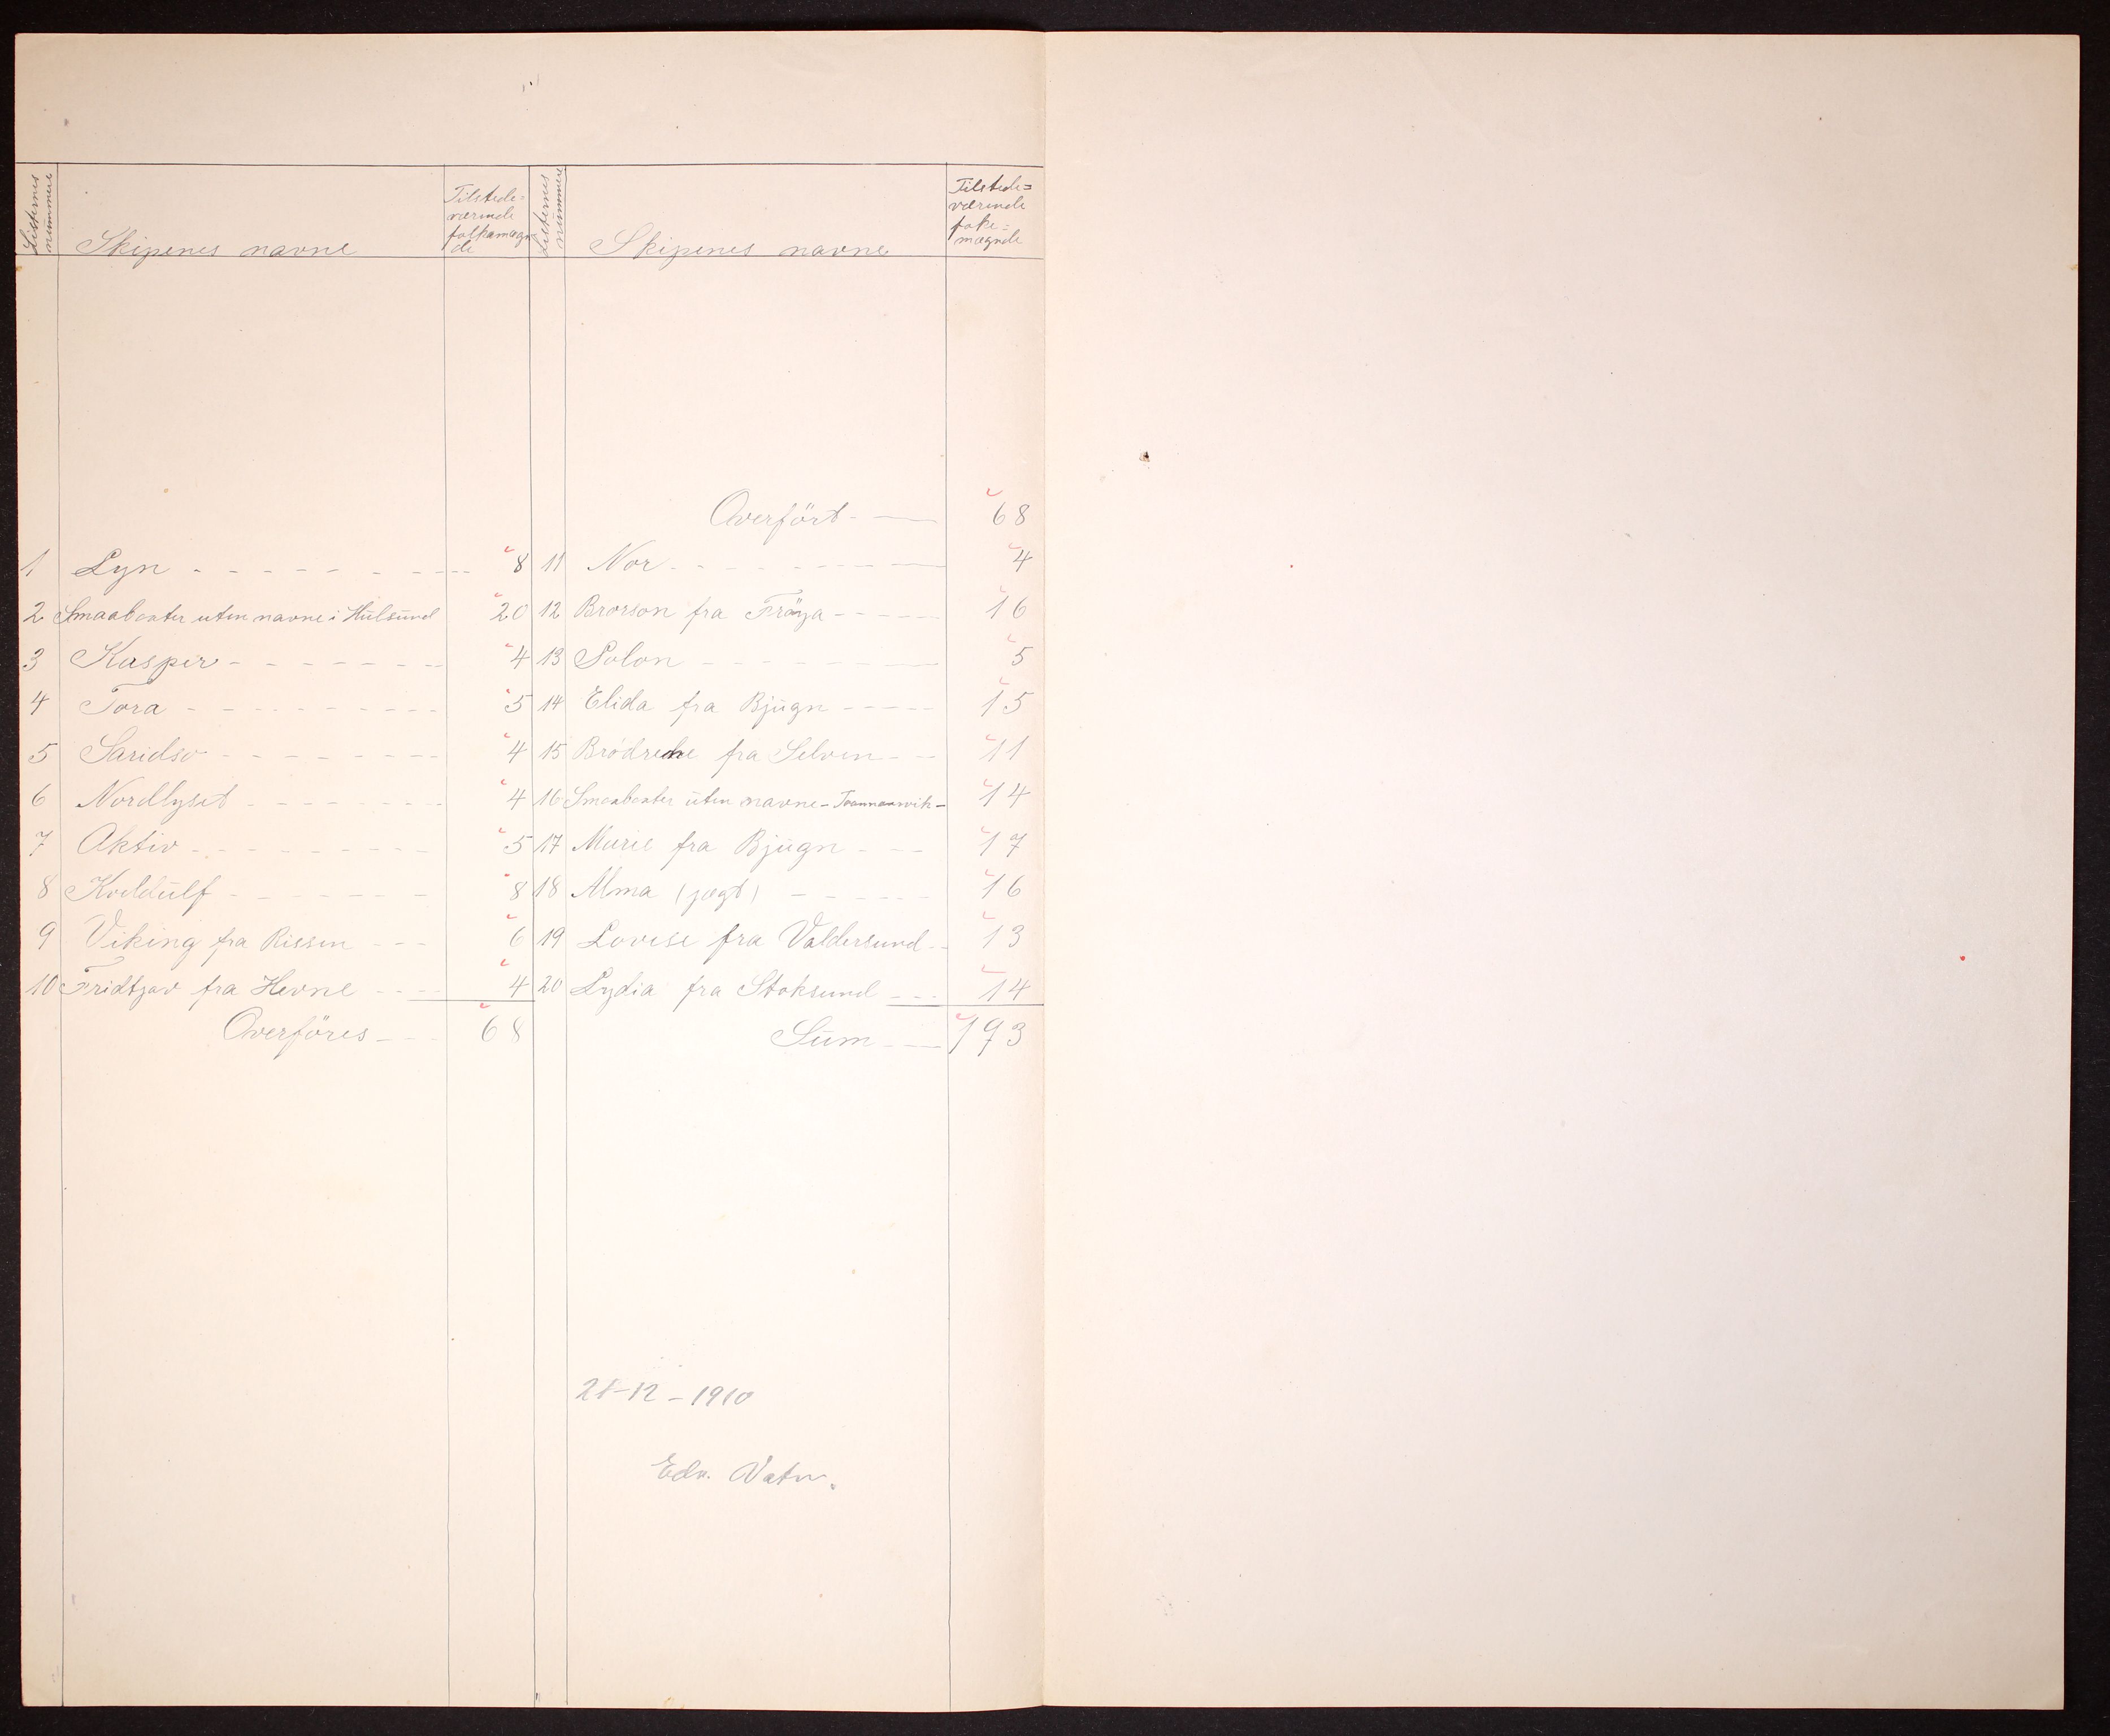 Listernes nummere
Skipenes navne
Tilstede=
værende
folkamægn
de
1 Lyn 8
2 Smaabaater uten navne i Hulsund 20
3 Kasper 4
4 Tora 5
5 4
6 Nordlyset 4
7 Aktiv 5
8 Kveldulf 8
9 Viking fra Rissen 6
10 Fridtjav fra Hevne 4
Overföres 68
Listernes nummere
Skipenes navne
Tilstede=
værende
foke=
mægnde
Overfört 68
11 Nor 4
12 Brorson fra Fröya 16
13 Solon 5
14 Elida fra Bjugn 15
15 Brödrene fra Selven 11
16 Smaabaater uten navne - 14
17 Marie fra Bjugn 17
18 Alma (jægt) 16
19 Lovise fra Valdersund 13
20 Lydia fra Stoksund 14
Sum 193
21-12-1910
Edv. Vatn.